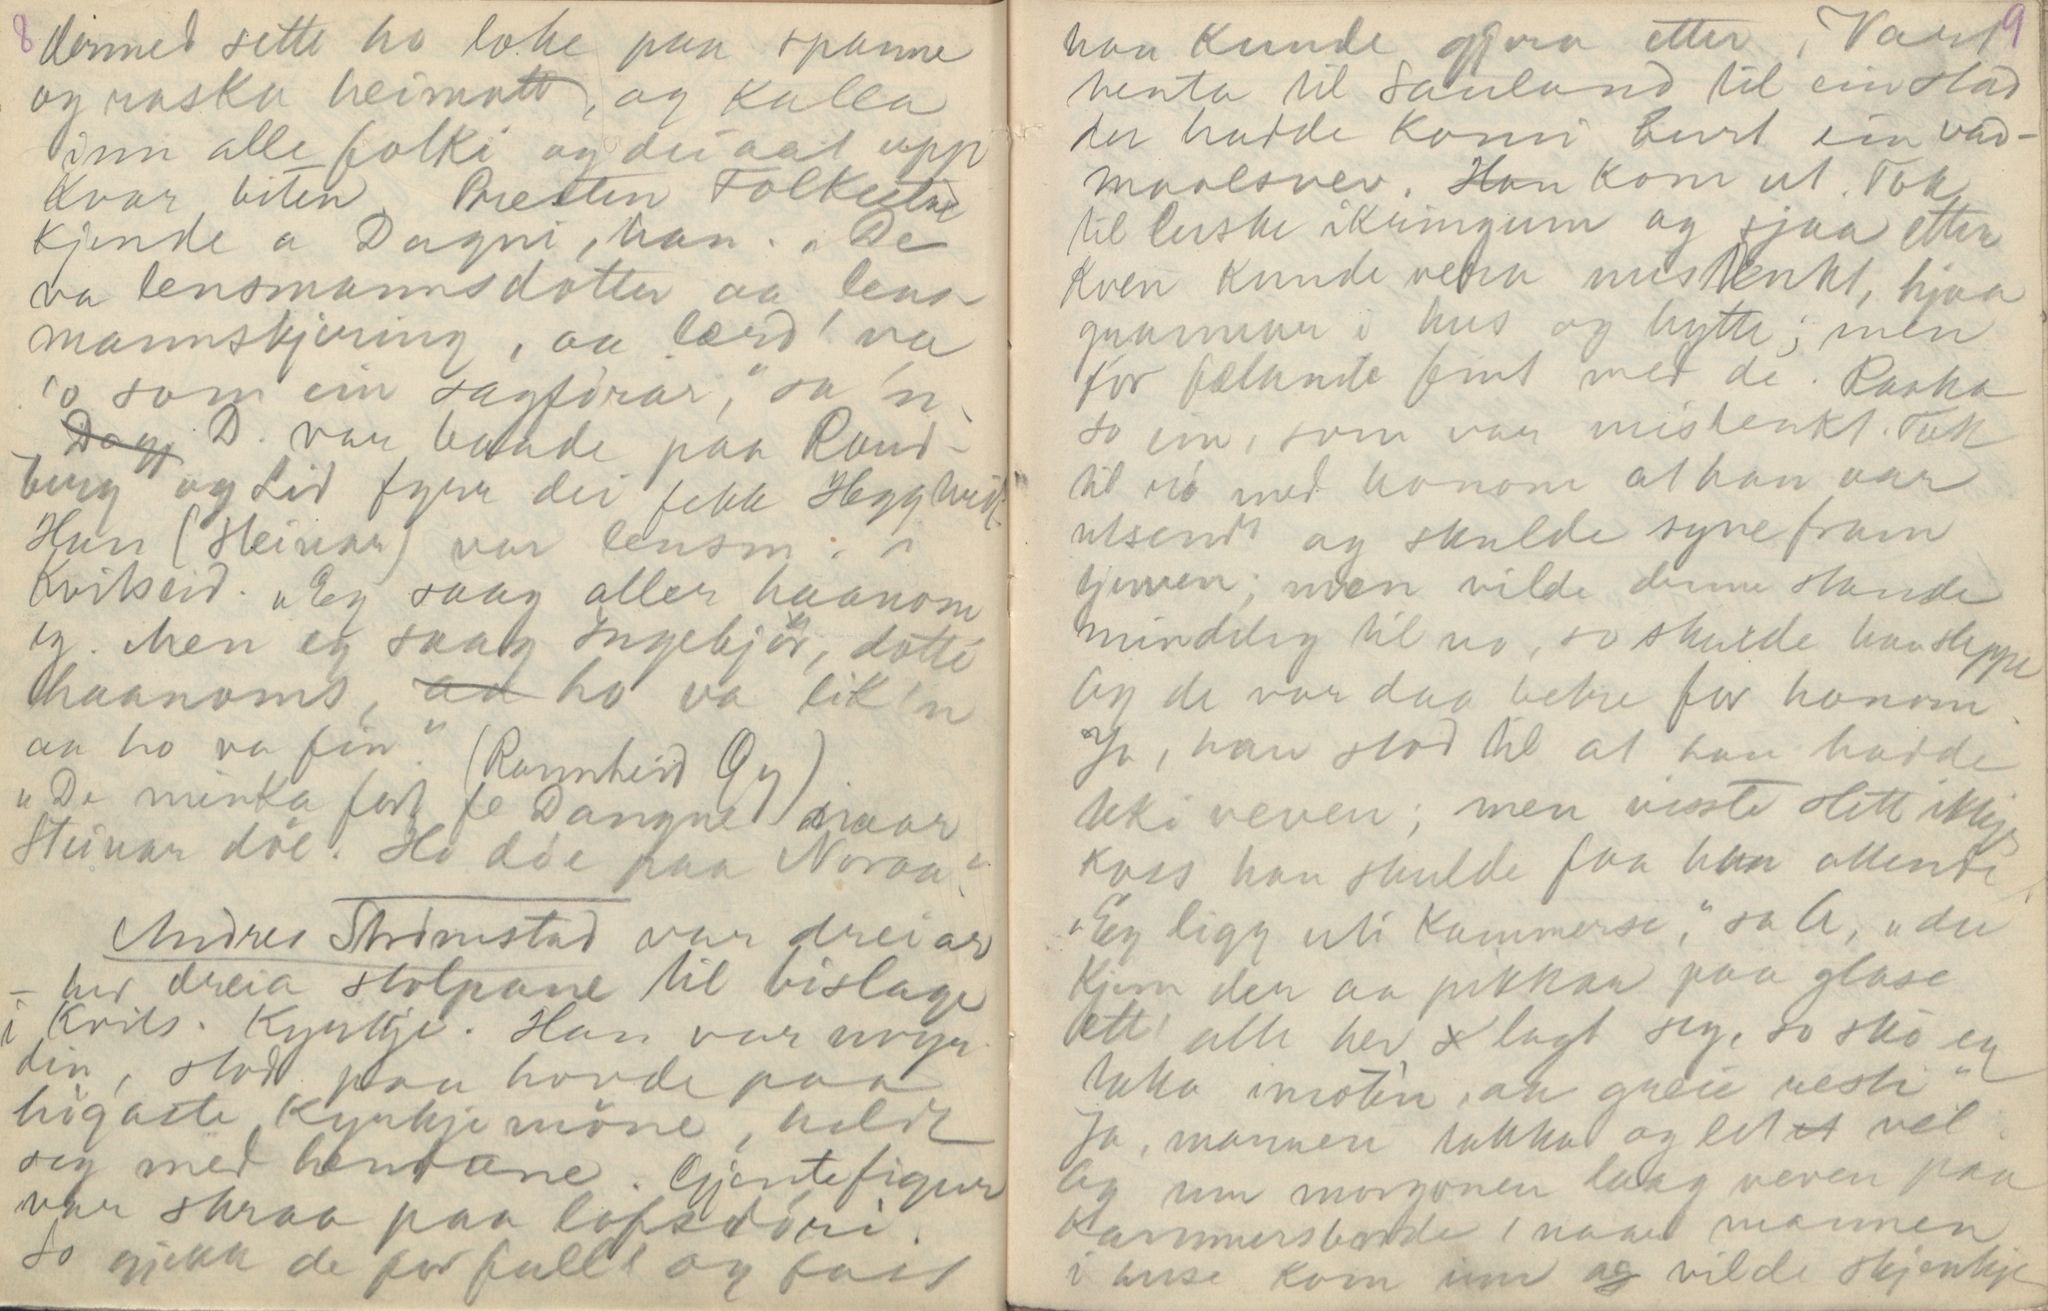 8
dermed sette ho loke paa spanne
og raska heimatt, og kalla
inn alle folki og dei aat upp
kvar biten. Presten Folkestad
kjende a Dagni, han. "De
va lensmannsdotter aa lens-
mannskjering, aa lærd' va
'o som ein sagförar," sa 'n.
Dagn D. var baade paa Rand-
berg og Lid fyrr dei fekk
Han (Steinar) var lensm. i
Kviteseid. "Eg saag aller haanom
eg. Men eg saag Ingebjör, dotte
haanoms, aa ho va lik 'n
aa ho va fin." (Rannheid Öy)
"De minka fort fe Dangne naar
Steinar döe. Ho döe paa Noraa."
Andres Strömstad var dreiar
- hev dreia stolpane til bislage
i Kvits. kyrkje. Han var
din, stod paa hovde paa
högaste kyrkjemöne, heldt
seg med hendane. Gjentefigur
var skraa paa loftsdöri.
So gjekk de for fullt og fast
9
han kunde gjera etter. Vart
henta til Sauland til ein stad
der hadde komi burt ein vad-
maalsvev. Han kom ut. Tok
til luske ikringum og sjaa etter
kven kunde vera mistenkt, hjaa
grannar i hus og hytte; men
for fælande fint med de. Raska
so ein, som var mistenkt. Tok
til röe med honom at han var
utsend' og skulde syne fram
tjuven; men vilde denne stande
mindeleg til no, so skulde han sleppe
og de var daa betre for honom.
Ja, han stod til at han hadde
teki veven; men visste slett ikkje
koss han skulde faa han attende.
"Eg ligg uti kammerse," sa A, "du
kjem der aa pikkar paa glase
ett' alle hev lagt seg, so sko eg
taka imoten, aa greie resti"
Ja, mannen takka og let vel.
Og um morgonen laag veven paa
kammersborde, naar mannen
i huse kom inn og vilde skjenkje